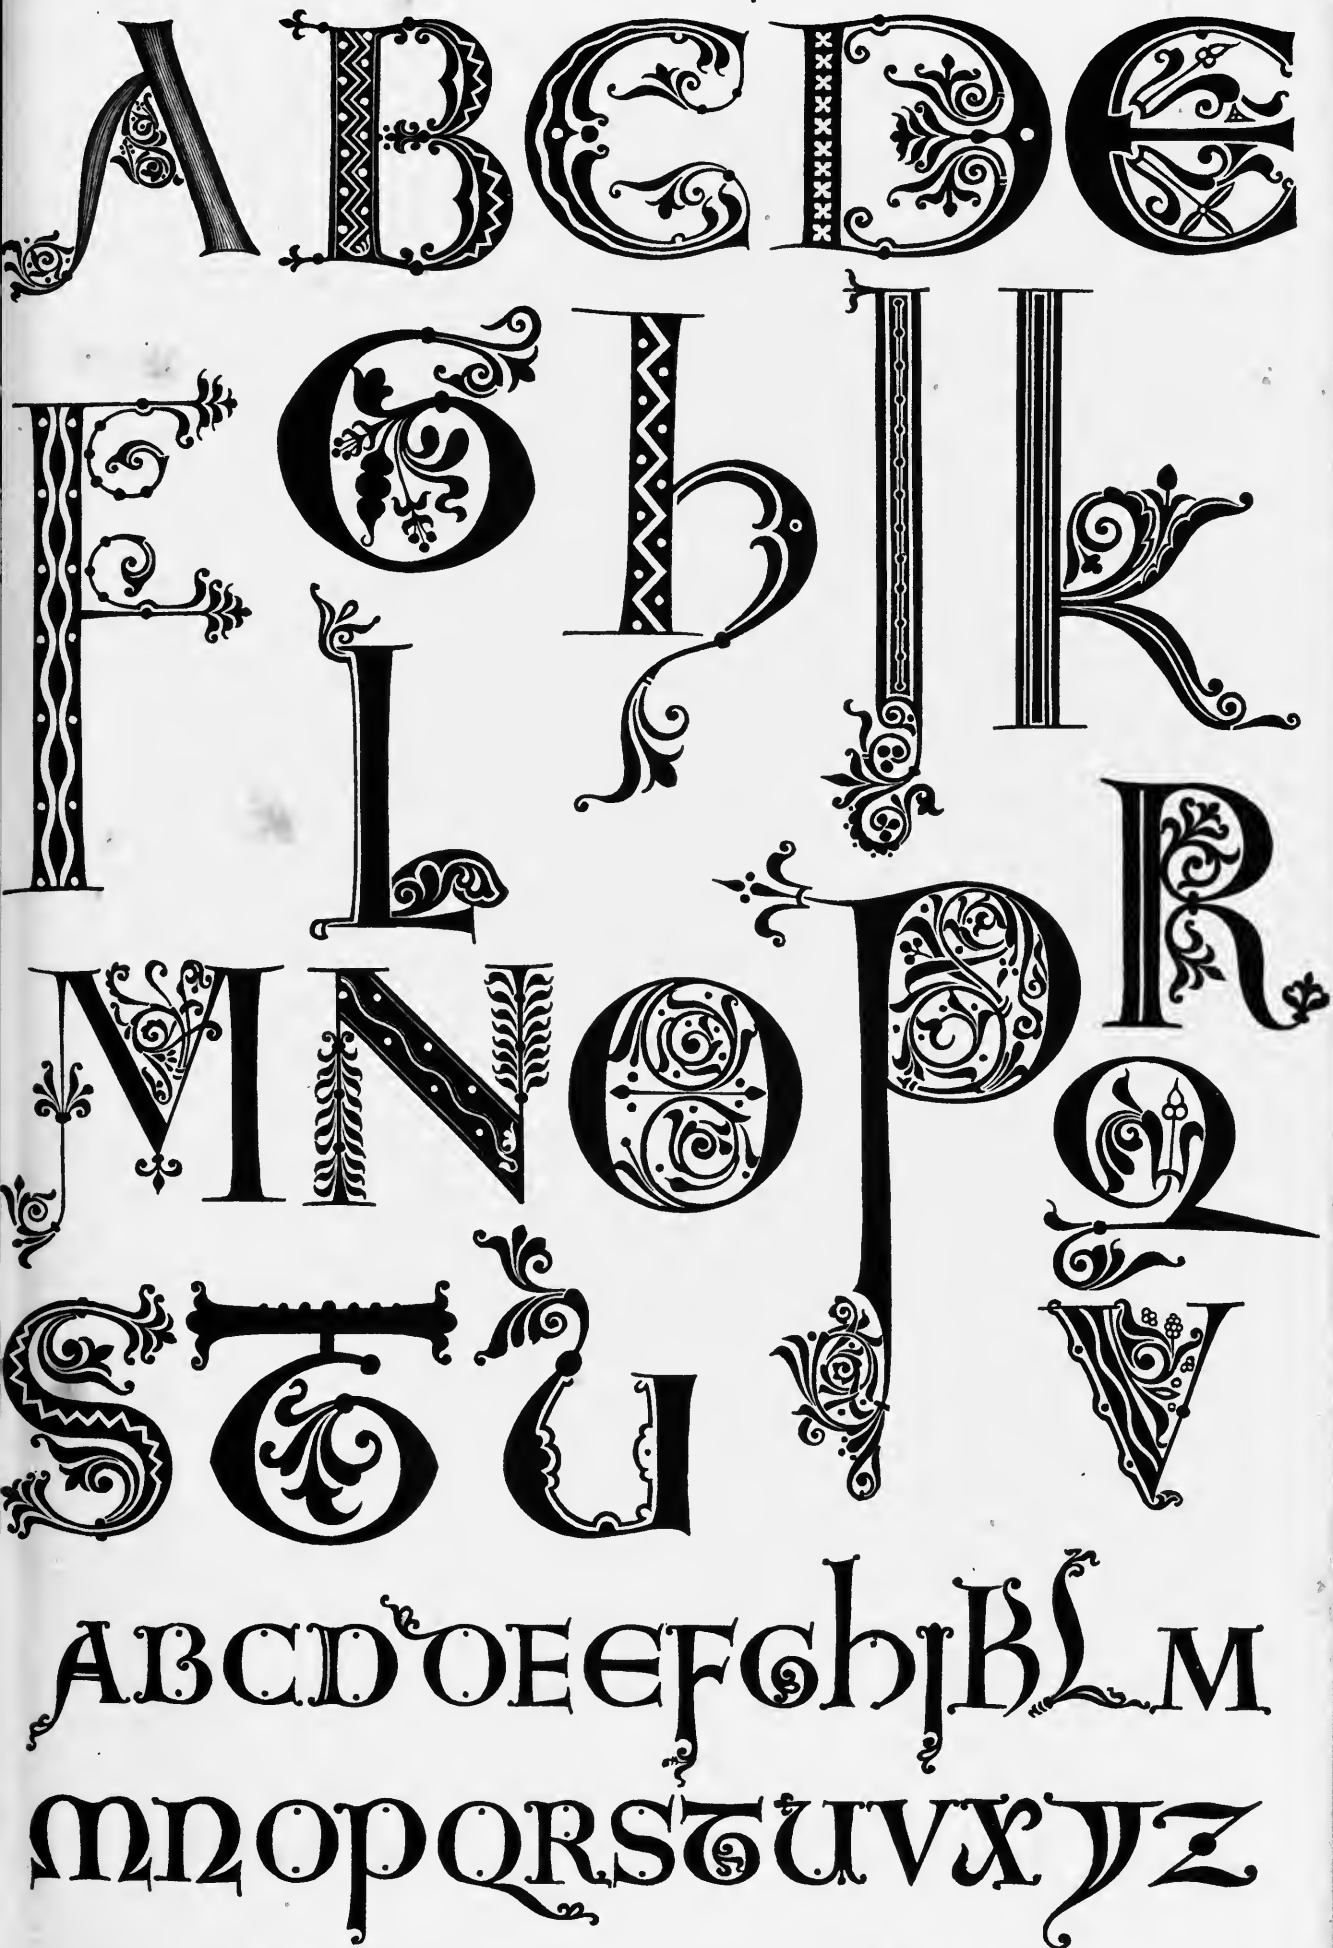 A B C D E
F G h I k
L
M N O P R
Q
S T U V
A B C D O E E F G h I K L M
m n O p Q R S T U V X Y Z